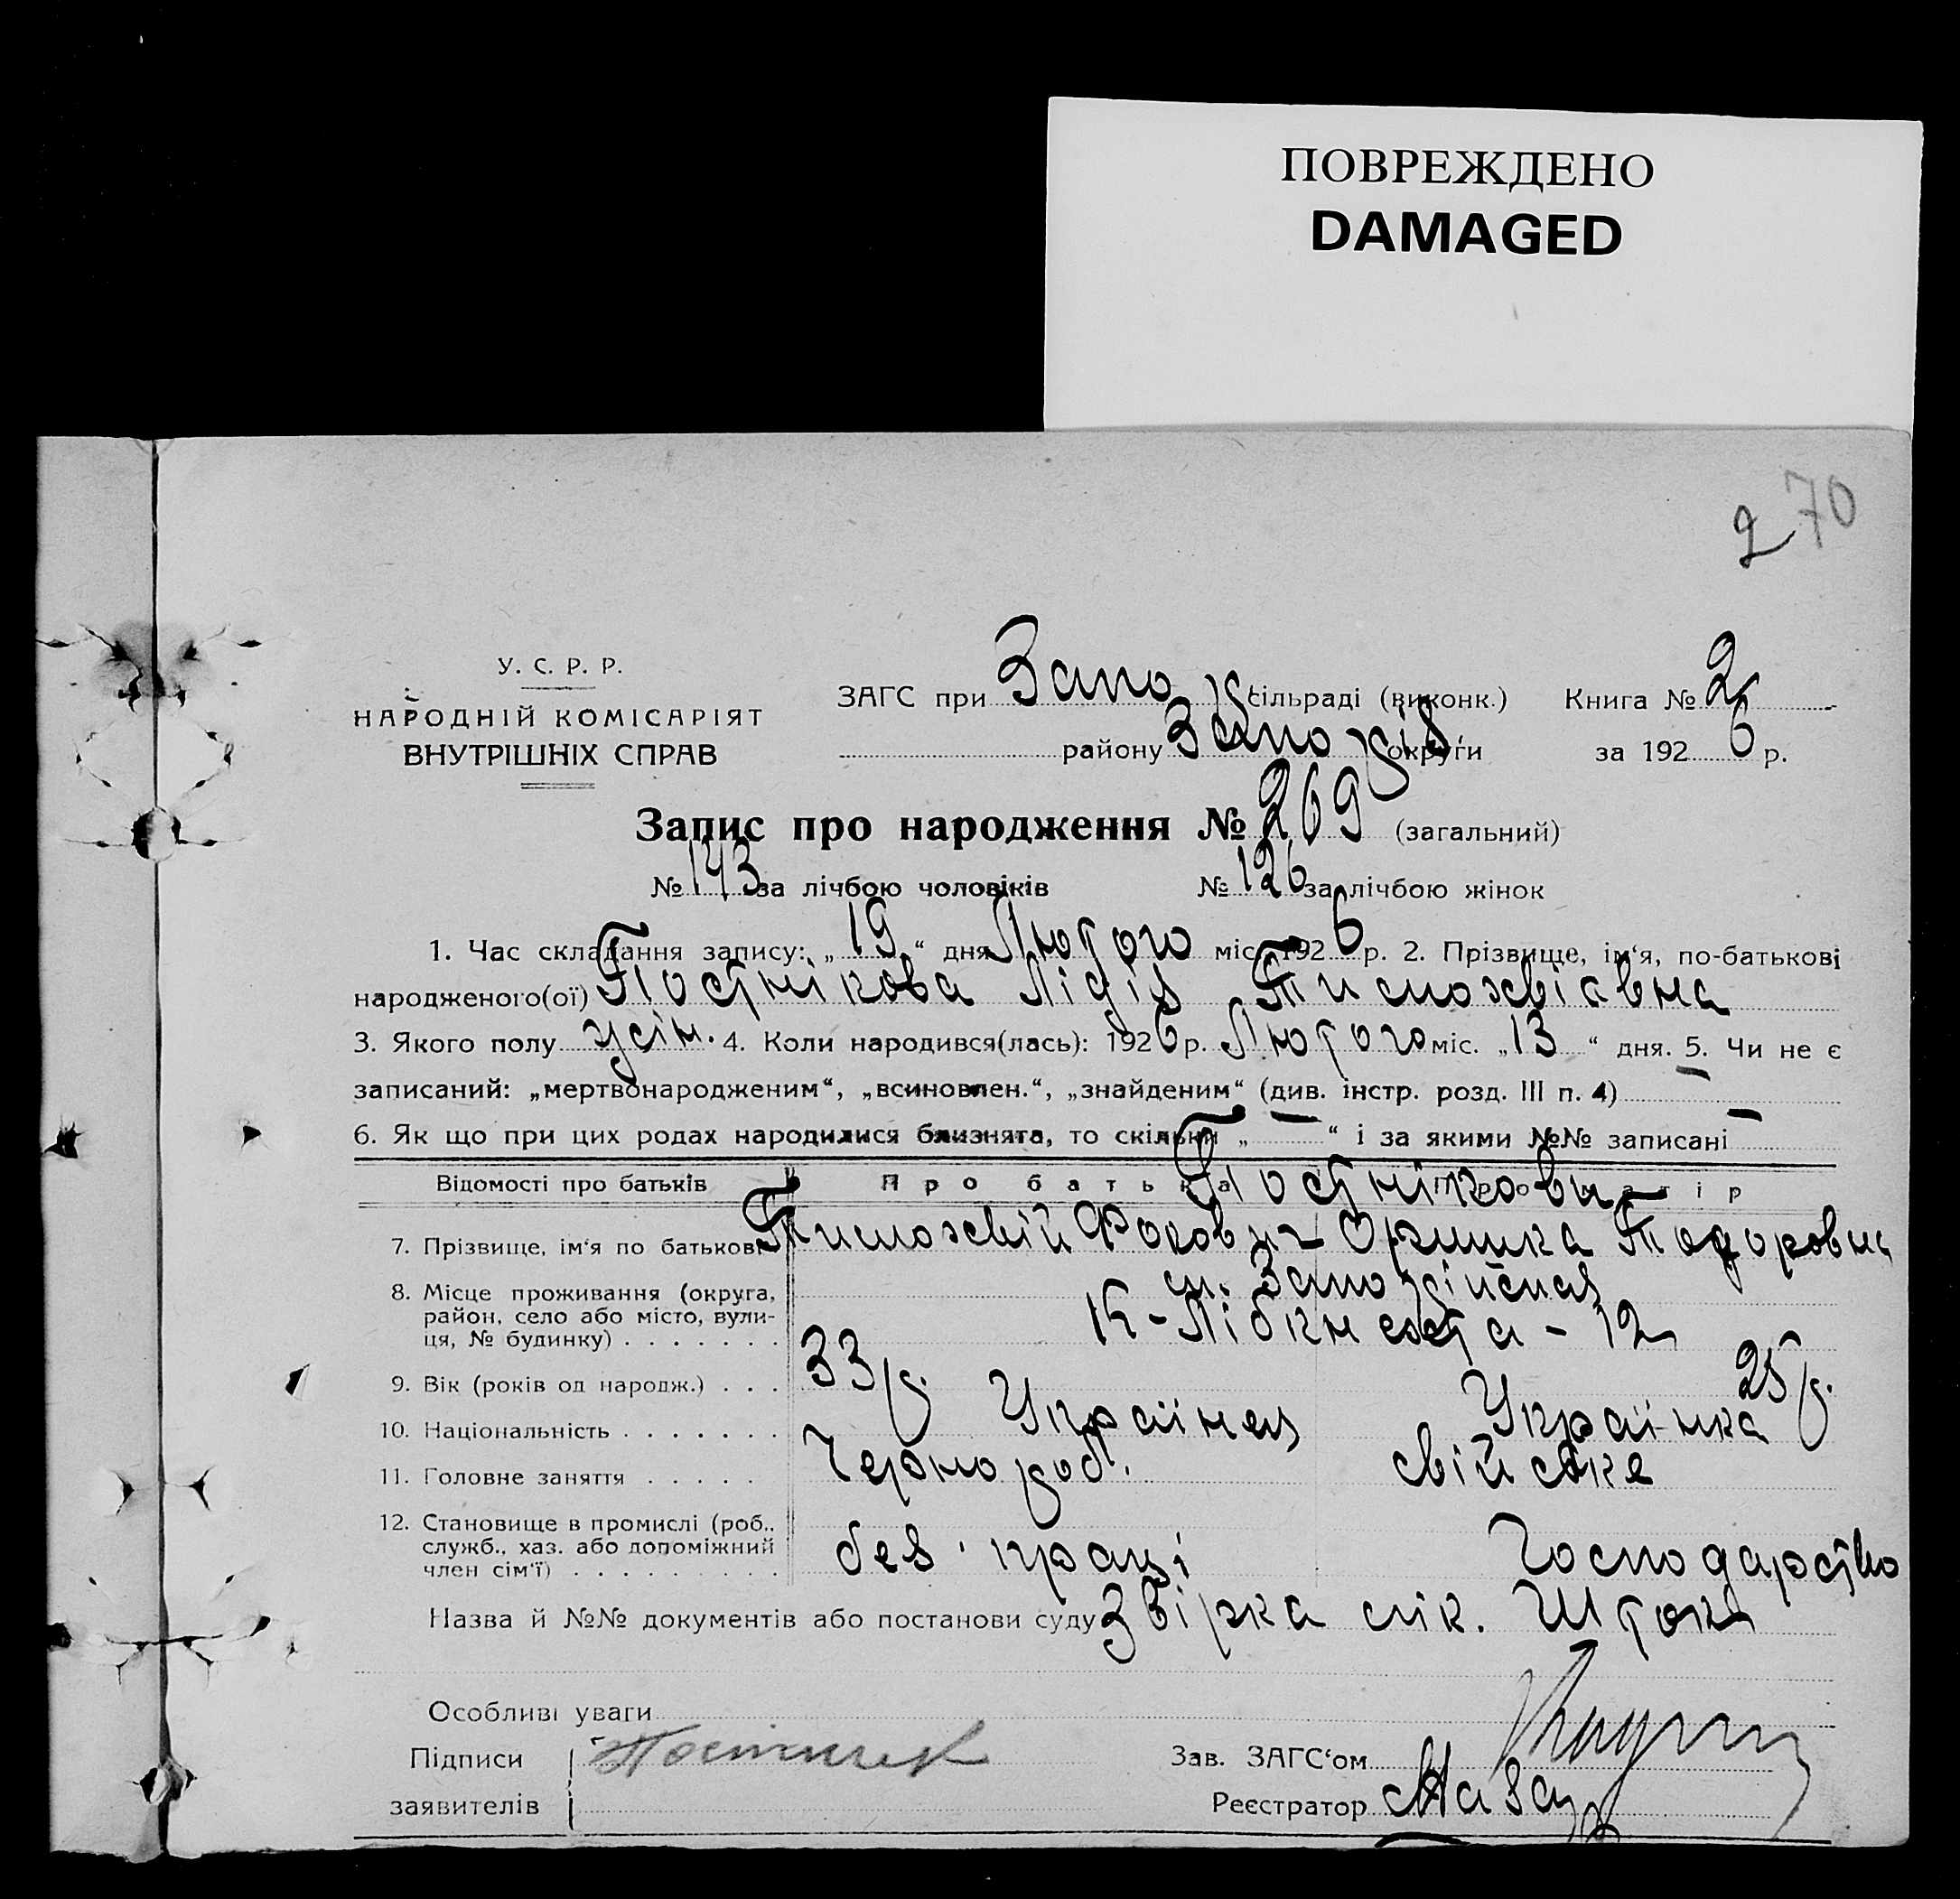 ПОВРЕЖДЕНО
DAMAGED
270
У. С. Р. Р.
НАРОДНІЙ КОМІСАРІЯТ
ВНУТРІШНІХ СПРАВ
ЗАГС при Запо сільраді (виконк.) Книга № 2
району Запо округи за 192 6 р.
Запис про народження № 269 (загальний)
№ 143 за лічбою чоловіків № 126 за лічбою жінок
1. Час складання запису: „ 19 “ дня Лютого міс. 192 6 р. 2. Прізвище, ім‘я, по-батькові
народженого(ої) Постнікова Лідія
3. Якого полу 4. Коли народився(лась): 192 6 р. Лютого міс. „ 13 “ дня. 5. Чи не є
записаний: „мертвонародженим“, „всиновлен.“, „знайденим“ (див. інстр. розд. III п. 4) —
6. Як що при цих родах народилися близнята, то скільки „ — “ і за якими №№ записані —
Відомості про батьків Про батька Про матір
Постнікови
7. Прізвище, ім‘я по батькові Тимохвій Фокович Оришка Тодоровна
8. Місце проживання (округа,
район, село або місто, вули-
ця, № будинку) . . . . . . .
К-Лібкнехта - 12
9. Вік (років од народж.) . . . 33 р. 25 р.
10. Національність . . . . . . . Українец Українка
11. Головне заняття . . . . . Чорнороб. свійське
12. Становище в промислі (роб.,
служб., хаз. або допоміжний
член сім‘ї) . . . . . . . . .
без праці господарство
Назва й №№ документів або постанови суду Звірка
Особливі уваги
Підписи
заявителів
Зав. ЗАГС‘ом
Реєстратор